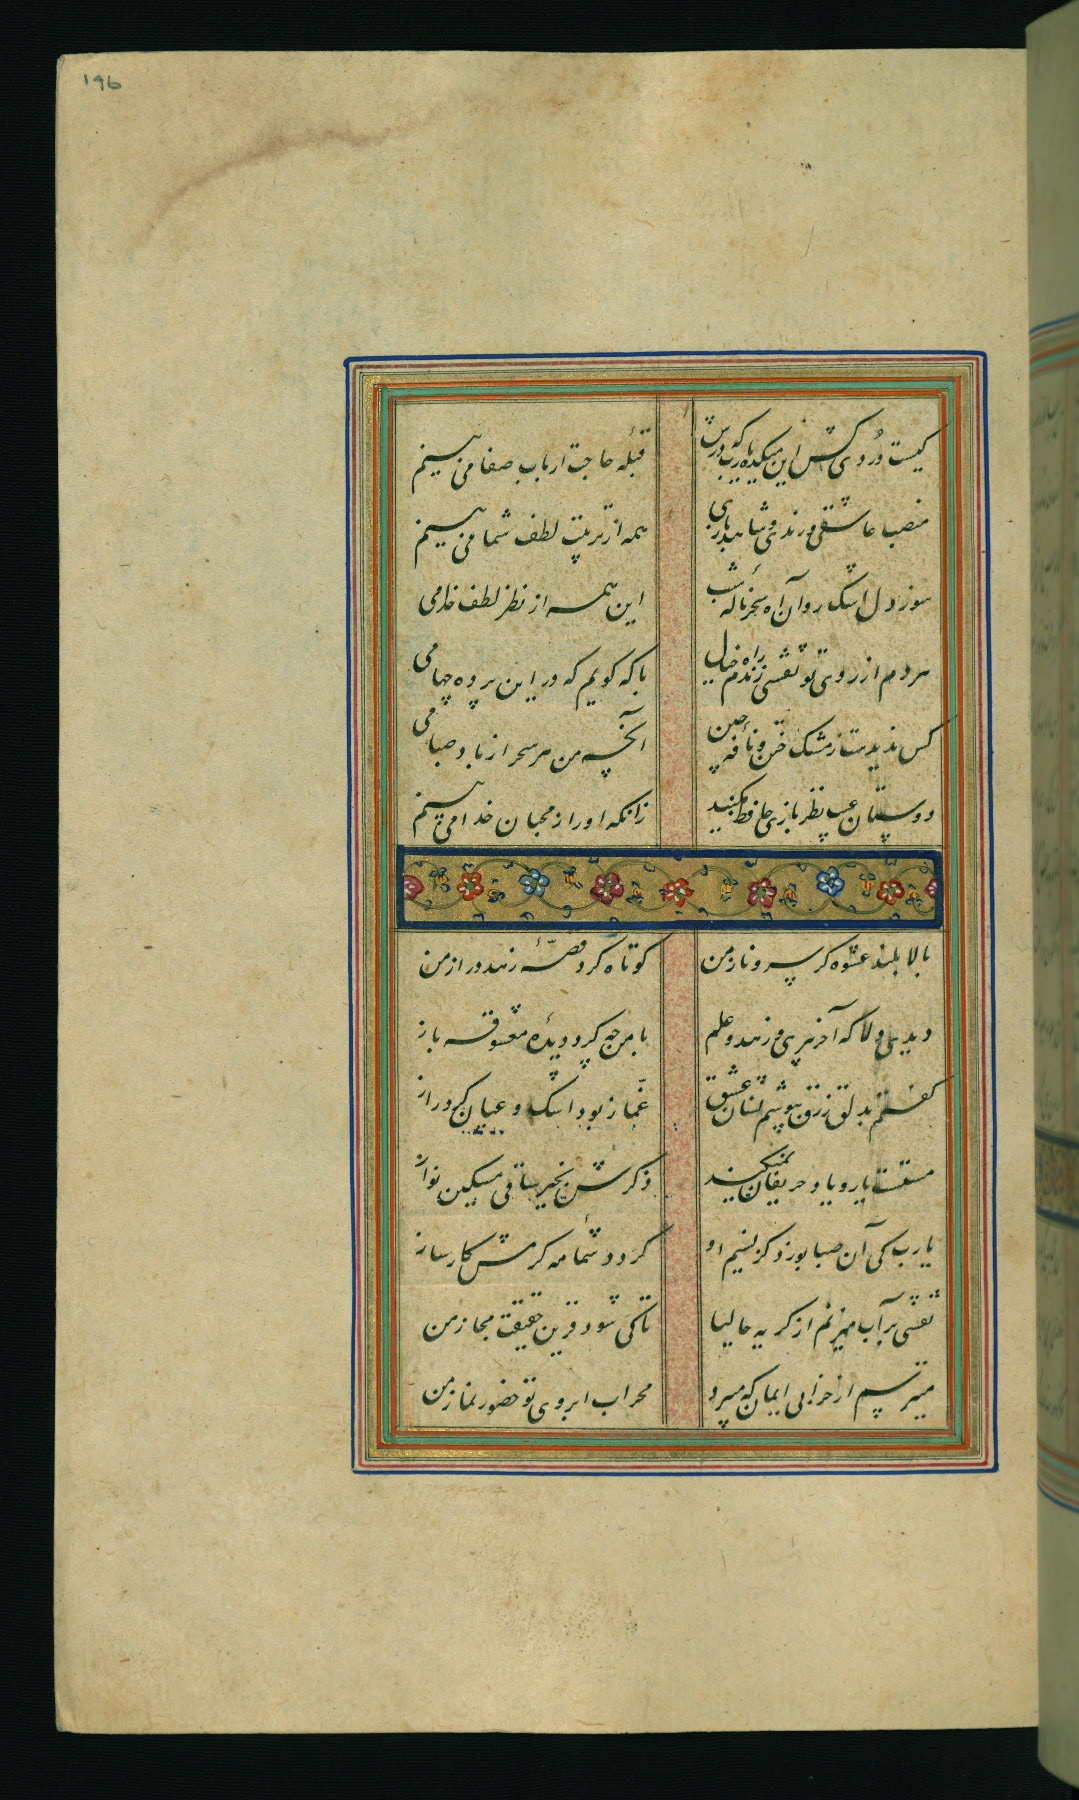 ۱۹۶
کیست دُردی کش این میکده یا رب که درش قبلهٔ حاجت ارباب صفا می بینم
منصب عاشقی و رندی و شاهد بازی همه از تربیت لطف شما می بینم
سوز دل اشک روان آه سحر نالهٔ شب این همه از نظر لطف خدا می
هر دم از روی تو نقشی زندم راه خیال با که کویم که در این پرده چها می
کس ندیدست ز مشک ختن و نافهٔ چین آنچه من هر سحر از باد صبا می
دوستان عیب نظر بازی حافظ مکنید زانکه او را ز محبان خدا می بینم
بالا بلند عشوه کر سرو ناز من کوتاه کرد قصّهٔ زهد دراز من
دیدی دلا که آخر پیری و زهد و علم با من چه کرد دیدهٔ معشوقه باز
کفتم بدلق زرق بپوشم نشان عشق غمّاز بود اشک و عیان کرد راز
مستست یار و یاد حریفان نمیکند ذکرش بخیر ساقی مسکین نواز
یارب کی آن صبا بوزد کز نسیم او کردد شمامهٔ کرمش کارساز
نقشی بر آب میزنم از کریه حالیا تا کی شود قرین حقیقت مجاز من
میترسم از خرابی ایمان که میبرد محراب ابروی تو حضور نماز من